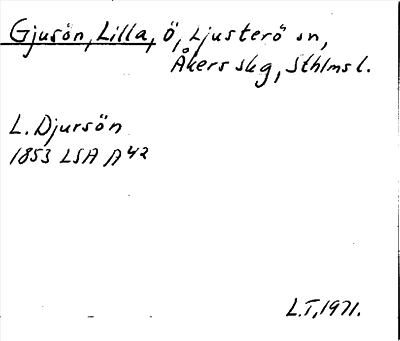 Gjusön, Lilla, Ö, Ljusterö sn,
Åkers skg, Sthlms l.
L. Djursön
1853 LSA A 42
L.T, 1971.